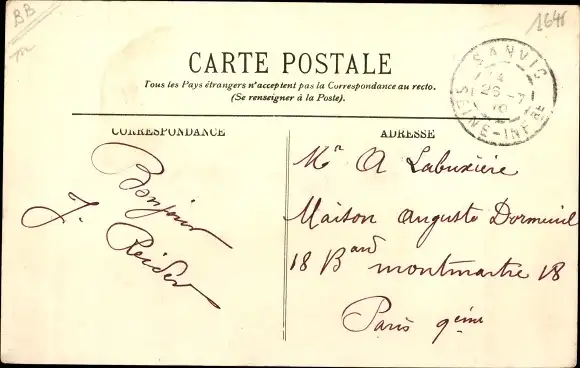 BB
1641
CARTE POSTALE
Tous les Pays étrangers n'acceptent pas la Correspondance au recto.
(Se renseigner à la Poste).
SANVIC
26 -7
SEINE-INFRE
CORRESPONDANCE
Bonjour
J. Reider
ADRESSE
Mr A Labuxière
Maison Auguste Dormeuil
18 Bard montmartre 18
Paris 9ème